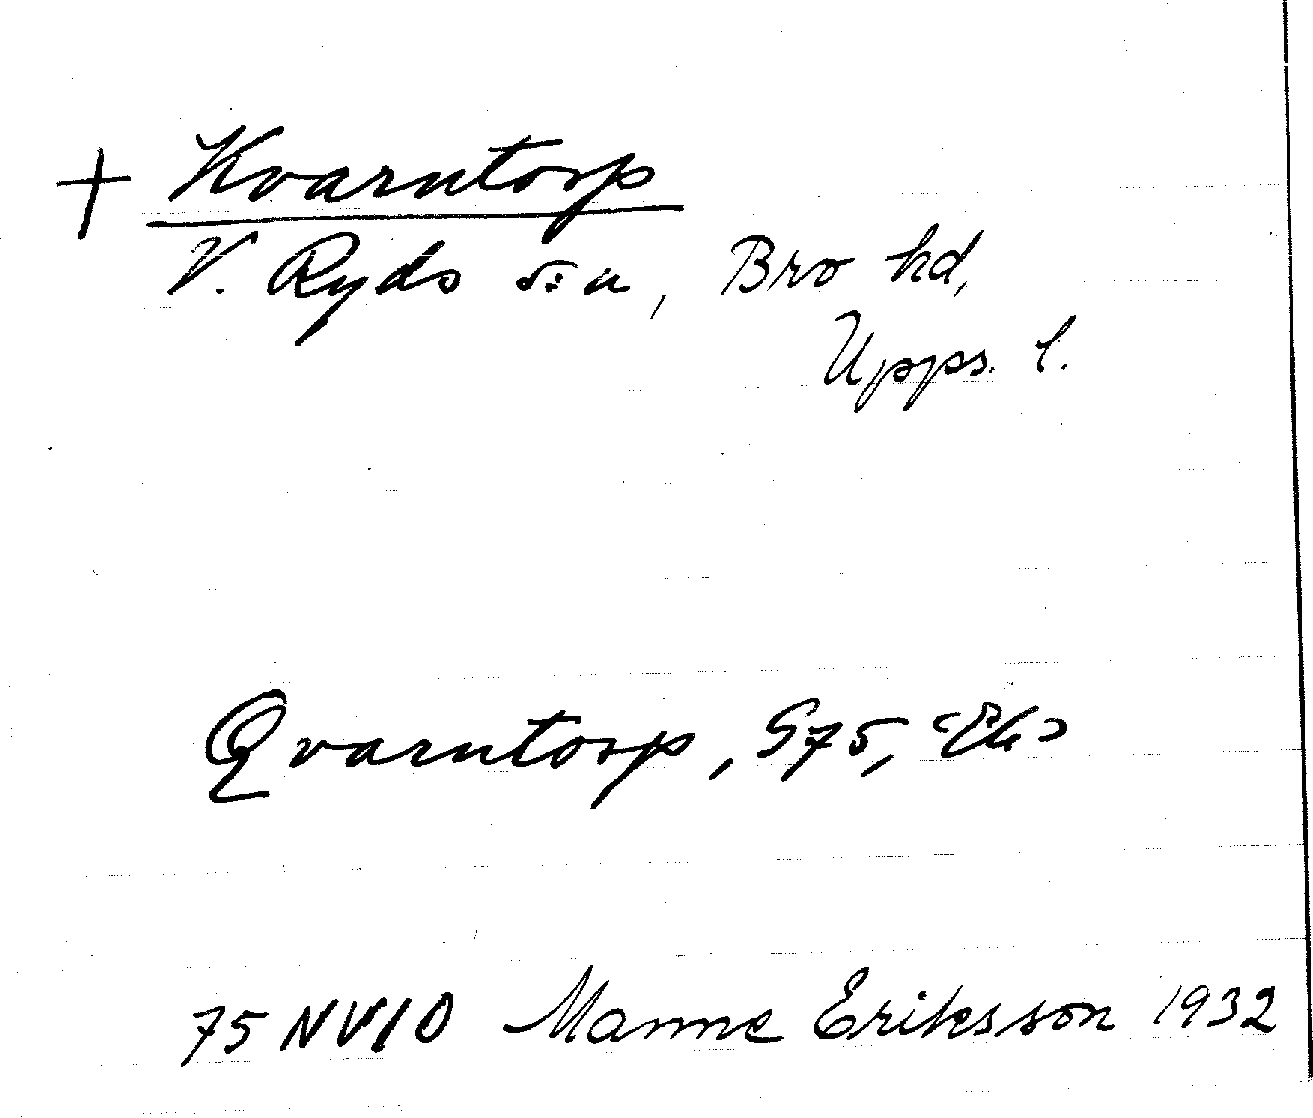 + Kvarntorp
V. Ryds s:n, Bro hd,
Upps. l.
Qvarntorp, G75, Ek
75 NV10 Manne Eriksson 1932